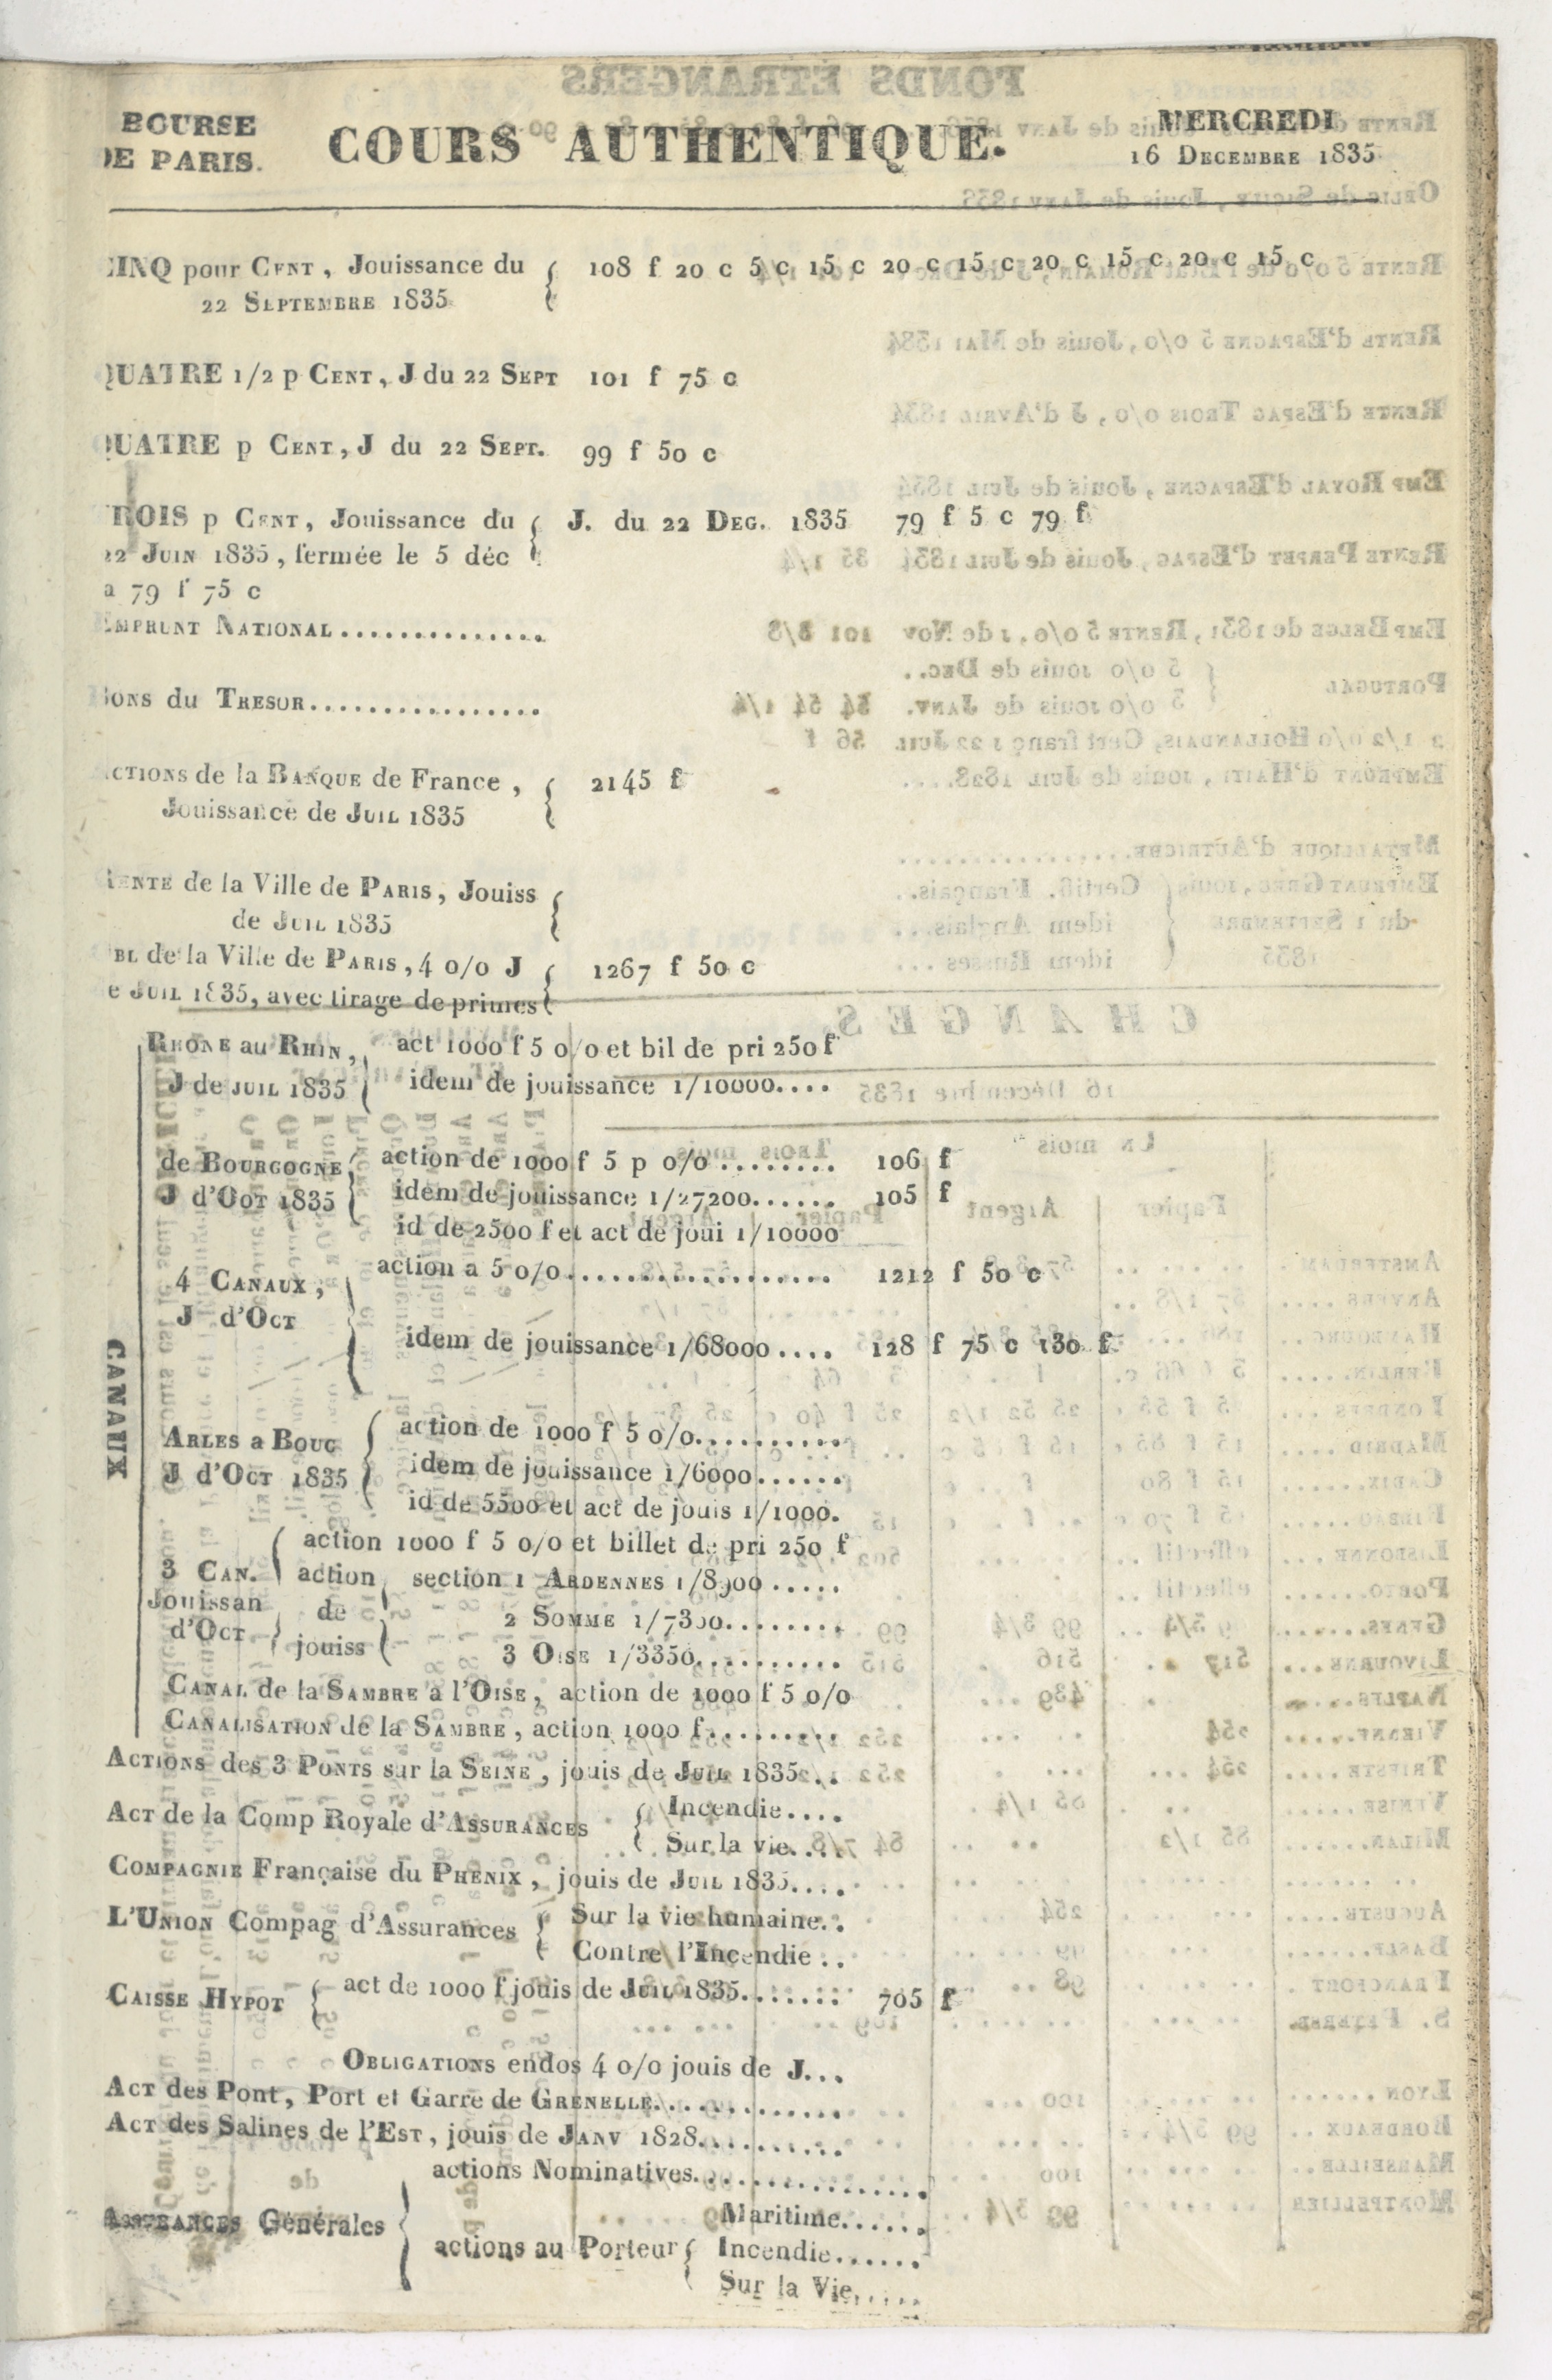 BOURSE
DE PARIS.
COURS AUTHENTIQUE.
MERCREDI
16 DECEMBRE 1835
CINQ pour CENT, Jouissance du { 108 f 20 c 5 c 15 c 20 c 15 c 20 c 15 c 20 c 15 c
22 SEPTEMBRE 1835
QUATRE 1/2 p CENT, J du 22 SEPT 101 f 75 c
QUATRE p CENT, J du 22 SEPT. 99 f 50 c
TROIS p CENT, Jouissance du { J. du 22 DEC. 1835 79 f 5 c 79 f
22 JUIN 1835, fermée le 5 déc
a 79 f 75 c
EMPRUNT NATIONAL..............
BONS du TRESOR................
ACTIONS de la BANQUE de France, { 2145 f
Jouissance de JUIL 1835
RENTE de la Ville de PARIS, Jouiss {
de JUIL 1835
OBL de la Ville de PARIS, 4 0/0 J { 1267 f 50 c
de JUIL 1835, avec tirage de primes
CANAUX
RHONE au RHIN, { act 1000 f 5 0/0 et bil de pri 250 f
J de JUIL 1835 idem de jouissance 1/10000....
de BOURGOGNE { action de 1000 f 5 p 0/0 ........ 106 f
J d'OCT 1835 idem de jouissance 1/27200...... 105 f
id de 2500 f et act de joui 1/10000
4 CANAUX, { action a 5 0/0.................. 1212 f 50 c
J d'OCT
idem de jouissance 1/68000.... 128 f 75 c 130 f
ARLES a BOUC { action de 1000 f 5 0/0..........
J d'OCT 1835 idem de jouissance 1/6000......
id de 5500 et act de jouis 1/1000.
3 CAN. { action 1000 f 5 0/0 et billet de pri 250 f
Jouissan action { section 1 ARDENNES 1/8900.....
d'OCT de 2 SOMME 1/7300........
jouiss 3 OISE 1/3350..........
CANAL de la SAMBRE à l'OISE, action de 1000 f 5 0/0
CANALISATION de la SAMBRE, action 1000 f.........
ACTIONS des 3 PONTS sur la SEINE, jouis de JUIL 1835...
ACT de la Comp Royale d'ASSURANCES { Incendie....
Sur la vie....
COMPAGNIE Française du PHENIX, jouis de JUIL 1835....
L'UNION Compag d'Assurances { Sur la vie humaine..
Contre l'Incendie..
CAISSE HYPOT { act de 1000 f jouis de JUIL 1835....... 705 f
OBLIGATIONS endos 4 0/0 jouis de J...
ACT des Pont, Port et Garre de GRENELLE.............
ACT des Salines de l'EST, jouis de JANV 1828..........
ASSURANCES Générales { actions Nominatives................
actions au Porteur { Maritime......
Incendie......
Sur la Vie.....